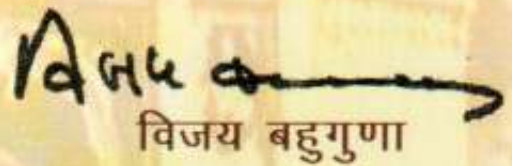 विजय
विजय बहुगुणा